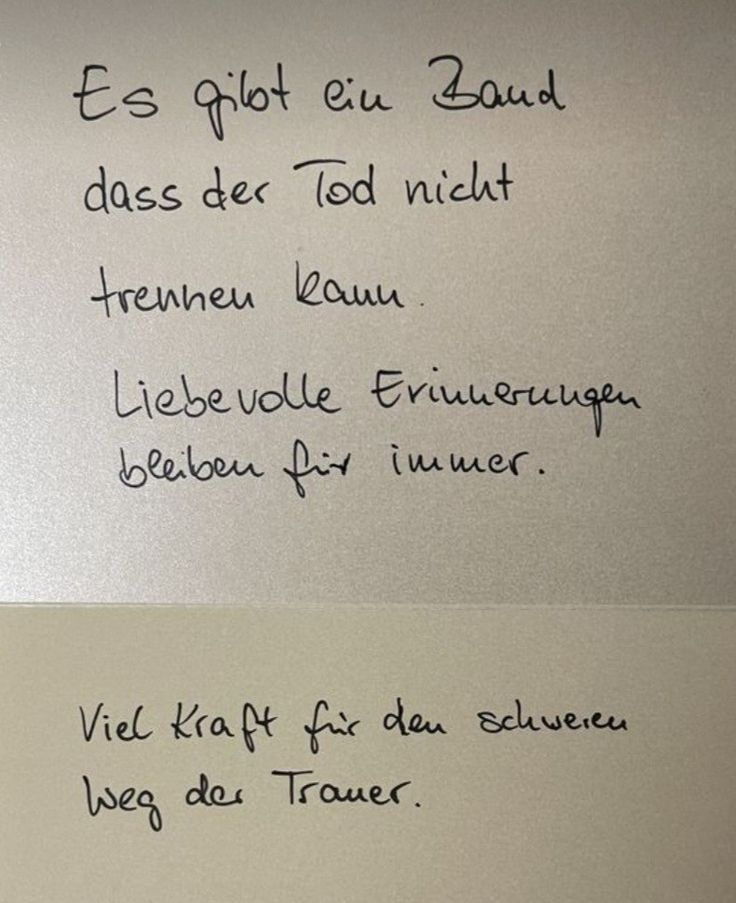 Es gibt ein Band
dass der Tod nicht
trennen kann.
Liebevolle Erinnerungen
bleiben für immer.
Viel Kraft für den schweren
Weg der Trauer.